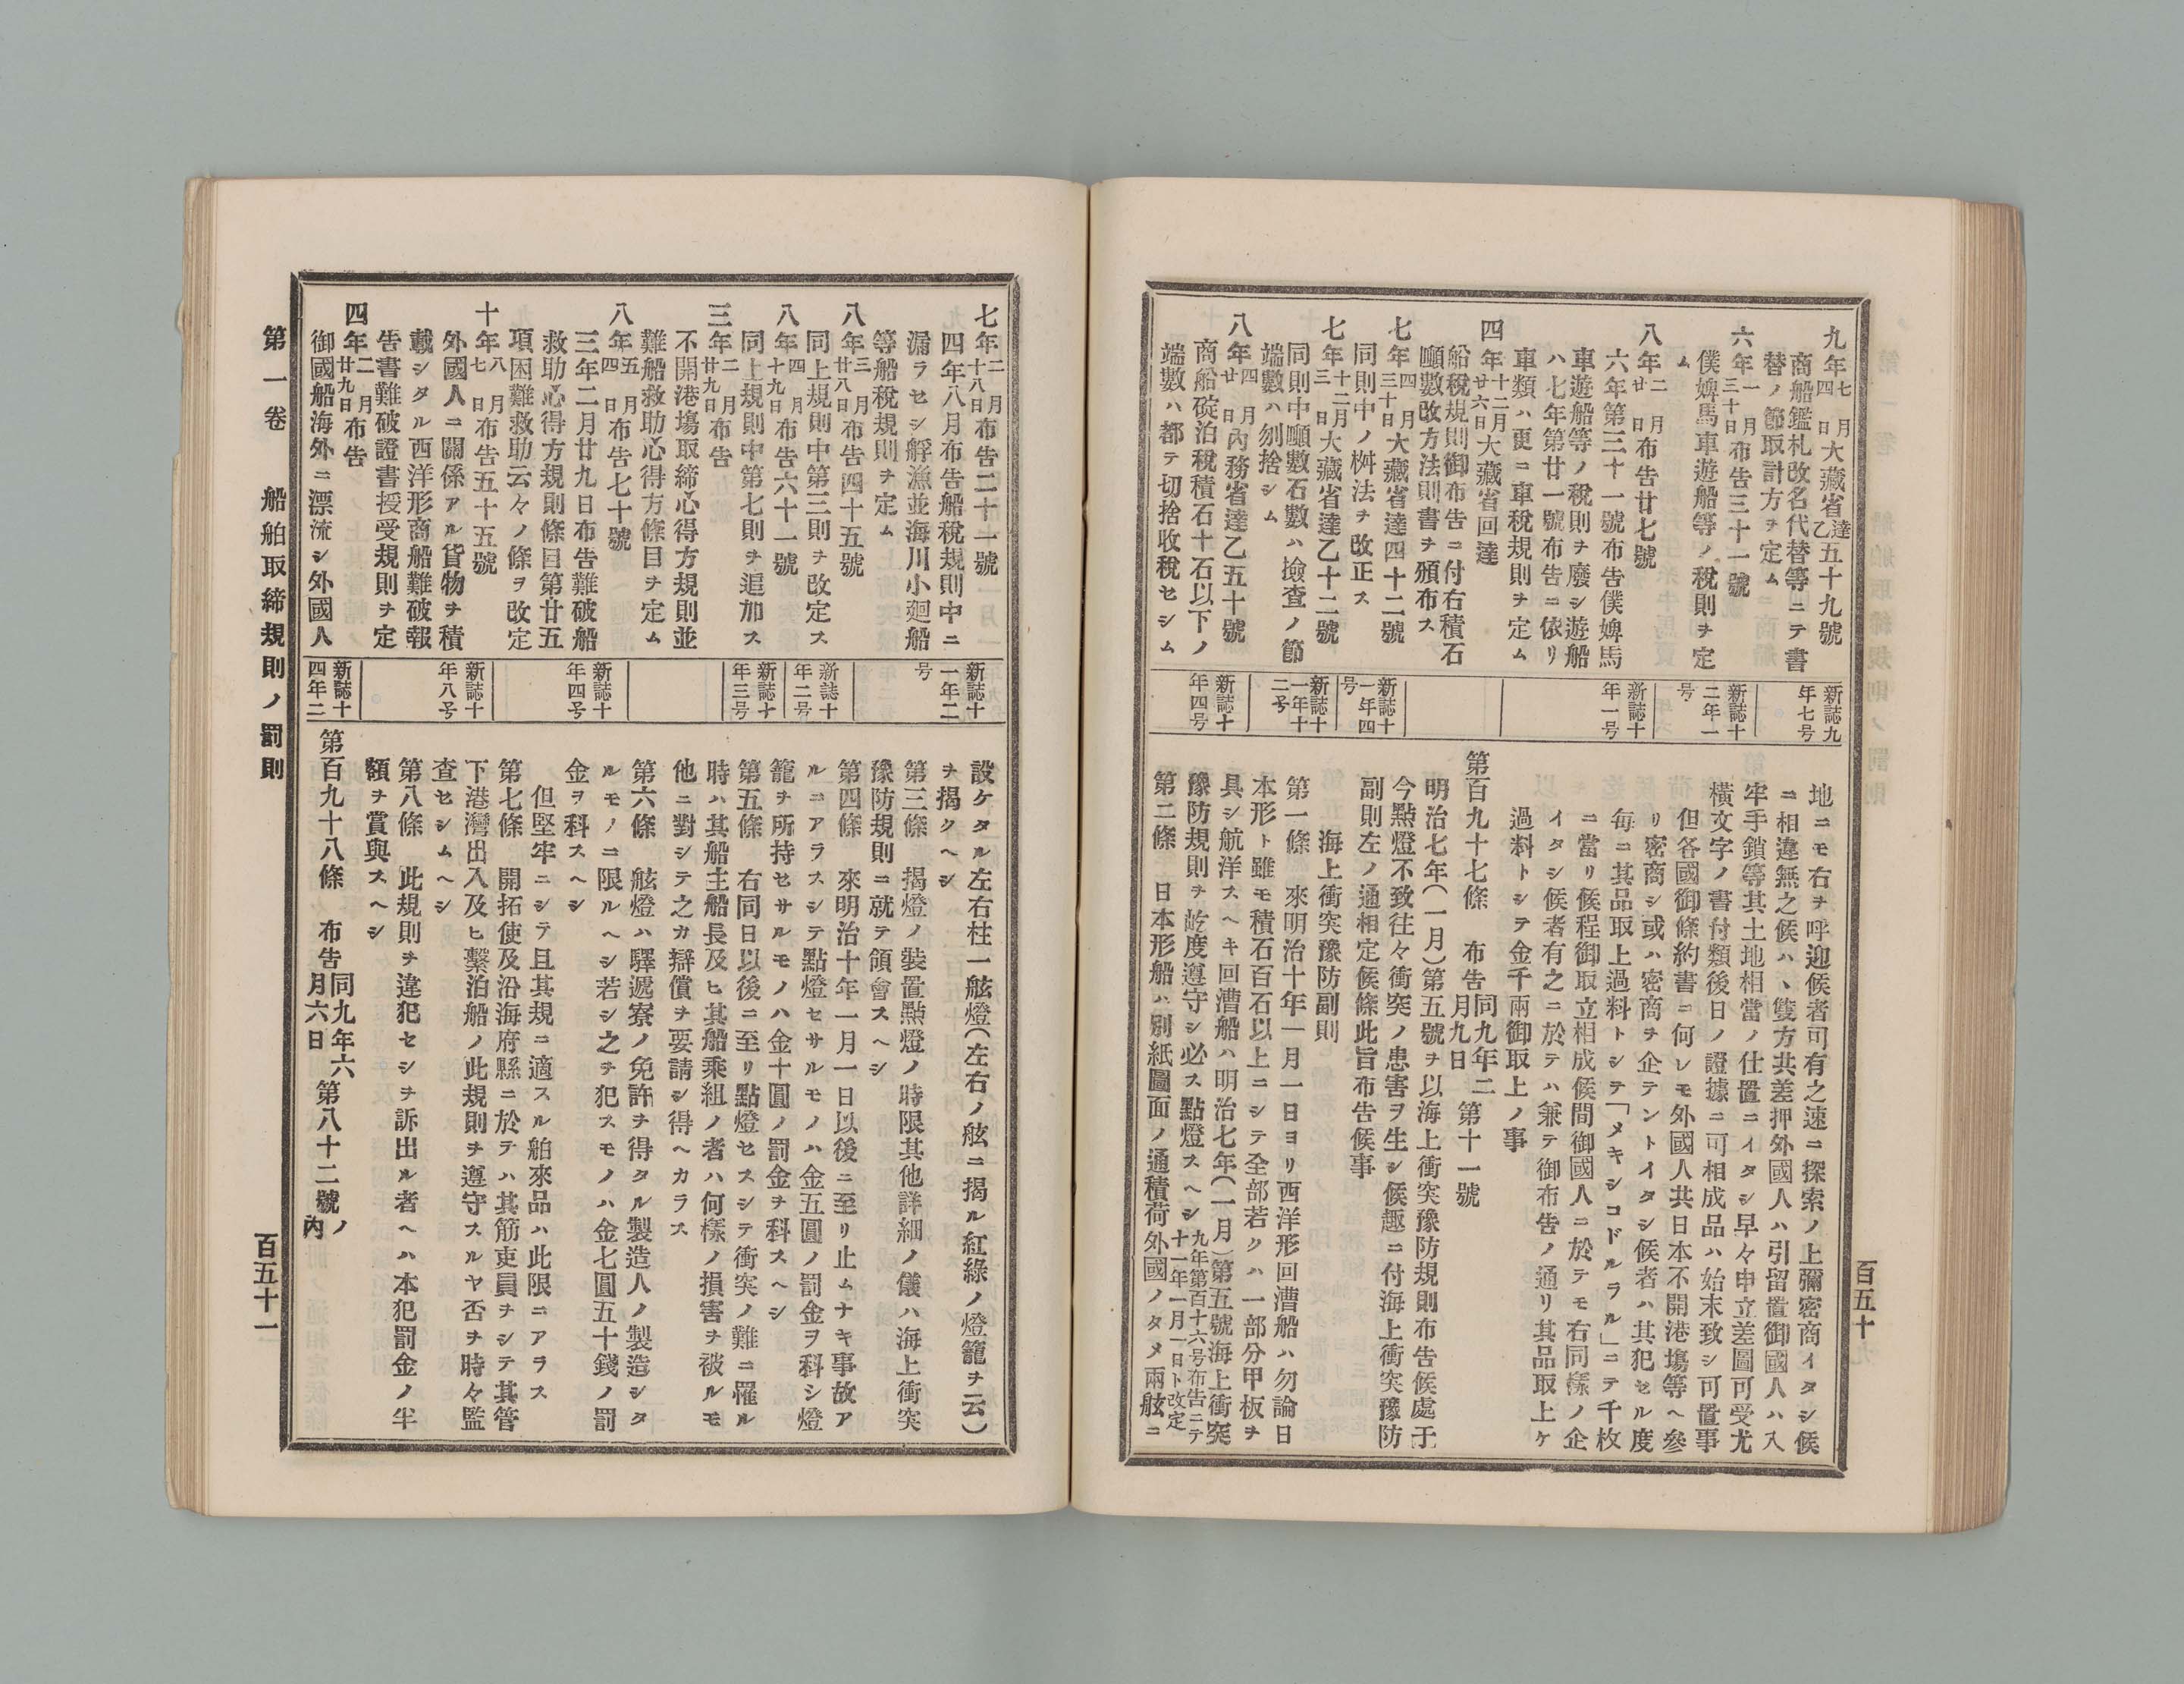 九年七月四日大藏省達乙五十九號
商船鑑札改名代替等ニテ書
替ノ節取計方ヲ定ム
六年一月三十日布告三十一號
僕婢馬車遊船等ノ稅則ヲ定
ム
八年二月廿日布告廿七號
六年第三十一號布告僕婢馬
車遊船等ノ稅則ヲ廢シ遊船
ハ七年第廿一號布告ニ依リ
車類ハ更ニ車稅規則ヲ定ム
四年十二月廿六日大藏省回達
船稅規則御布告ニ付右積石
噸數改方法則書ヲ頒布ス
七年四月三十日大藏省達四十二號
同則中ノ桝法ヲ改正ス
七年十二月三日大藏省達乙十二號
同則中噸數石數ハ撿查ノ節
端數ハ刎捨シム
八年四月廿日內務省達乙五十號
商船碇泊稅積石十石以下ノ
端數ハ都テ切捨收稅セシム
新誌九年七号
新誌十二年一号
新誌十年一号
新誌十一年四号
新誌十一年十二号
新誌十年四号
地ニモ右ヲ呼迎候者可有之速ニ探索ノ上彌密商イタシ候
ニ相違無之候ハヽ雙方共差押外國人ハ引留置御國人ハ入
牢手鎖等其土地相當ノ仕置ニイタシ早々申立差圖可受尤
橫文字ノ書付類後日ノ證據ニ可相成品ハ始末致シ可置事
但各國御條約書ニ何レモ外國人共日本不開港塲等ヘ參
リ密商シ或ハ密商ヲ企テントイタシ候者ハ其犯セル度
每ニ其品取上過料トシテ「メキシコドルラル」ニテ千枚
ニ當リ候程御取立相成候間御國人ニ於テモ右同樣ノ企
イタシ候者有之ニ於テハ兼テ御布告ノ通リ其品取上ケ
過料トシテ金千兩御取上ノ事
第百九十七條 布告同九年二月九日第十一號
明治七年(一月)第五號ヲ以海上衝突豫防規則布告候處于
今點燈不致往々衝突ノ患害ヲ生シ候趣ニ付海上衝突豫防
副則左ノ通相定候條此旨布告候事
海上衝突豫防副則
第一條 來明治十年一月一日ヨリ西洋形回漕船ハ勿論日
本形ト雖モ積石百石以上ニシテ全部若クハ一部分甲板ヲ
具シ航洋スヘキ回漕船ハ明治七年(一月)第五號海上衝突
豫防規則ヲ屹度遵守シ必ス點燈スヘシ九年第百十六号布告ニテ十一年一月一日ト改定
第二條 日本形船ハ別紙圖面ノ通積荷外國ノタメ兩舷ニ
百五十
七年二月十八日布告二十一號
四年八月布告船稅規則中ニ
漏ラセシ艀漁並海川小廻船
等船稅規則ヲ定ム
八年三月廿八日布告四十五號
同上規則中第三則ヲ改定ス
八年四月十九日布告六十一號
同上規則中第七則ヲ追加ス
三年二月廿九日布告
不開港塲取締心得方規則並
難船救助心得方條目ヲ定ム
八年五月四日布告七十號
三年二月廿九日布告難破船
救助心得方規則條目第廿五
項困難救助云々ノ條ヲ改定
十年八月七日布告五十五號
外國人ニ關係アル貨物ヲ積
載シタル西洋形商船難破報
告書難破證書授受規則ヲ定
四年二月廿九日布告
御國船海外ニ漂流シ外國人
新誌十一年二号
新誌十年二号
新誌十年三号
新誌十年四号
新誌十年八号
新誌十四年二
設ケタル左右柱一舷燈(左右ノ舷ニ揭ル紅綠ノ燈籠ヲ云)
ヲ揭クヘシ
第三條 揭燈ノ裝置點燈ノ時限其他詳細ノ儀ハ海上衝突
豫防規則ニ就テ領會スヘシ
第四條 來明治十年一月一日以後ニ至リ止ムナキ事故ア
ルニアラスシテ點燈セサルモノハ金五圓ノ罰金ヲ科シ燈
籠ヲ所持セサルモノハ金十圓ノ罰金ヲ科スヘシ
第五條 右同日以後ニ至リ點燈セスシテ衝突ノ難ニ罹ル
時ハ其船主船長及ヒ其船乘組ノ者ハ何樣ノ損害ヲ被ルモ
他ニ對シテ之カ辯償ヲ要請シ得ヘカラス
第六條 舷燈ハ驛遞寮ノ免許ヲ得タル製造人ノ製造シタ
ルモノニ限ルヘシ若シ之ヲ犯スモノハ金七圓五十錢ノ罰
金ヲ科スヘシ
但堅牢ニシテ且其規ニ適スル舶來品ハ此限ニアラス
第七條 開拓使及沿海府縣ニ於テハ其筋吏員ヲシテ其管
下港灣出入及ヒ繫泊船ノ此規則ヲ遵守スルヤ否ヲ時々監
查セシムヘシ
第八條 此規則ヲ違犯セシヲ訴出ル者ヘハ本犯罰金ノ半
額ヲ賞與スヘシ
第百九十八條 布告同九年六月六日第八十二號ノ內
第一卷 船舶取締規則ノ罰則
百五十一